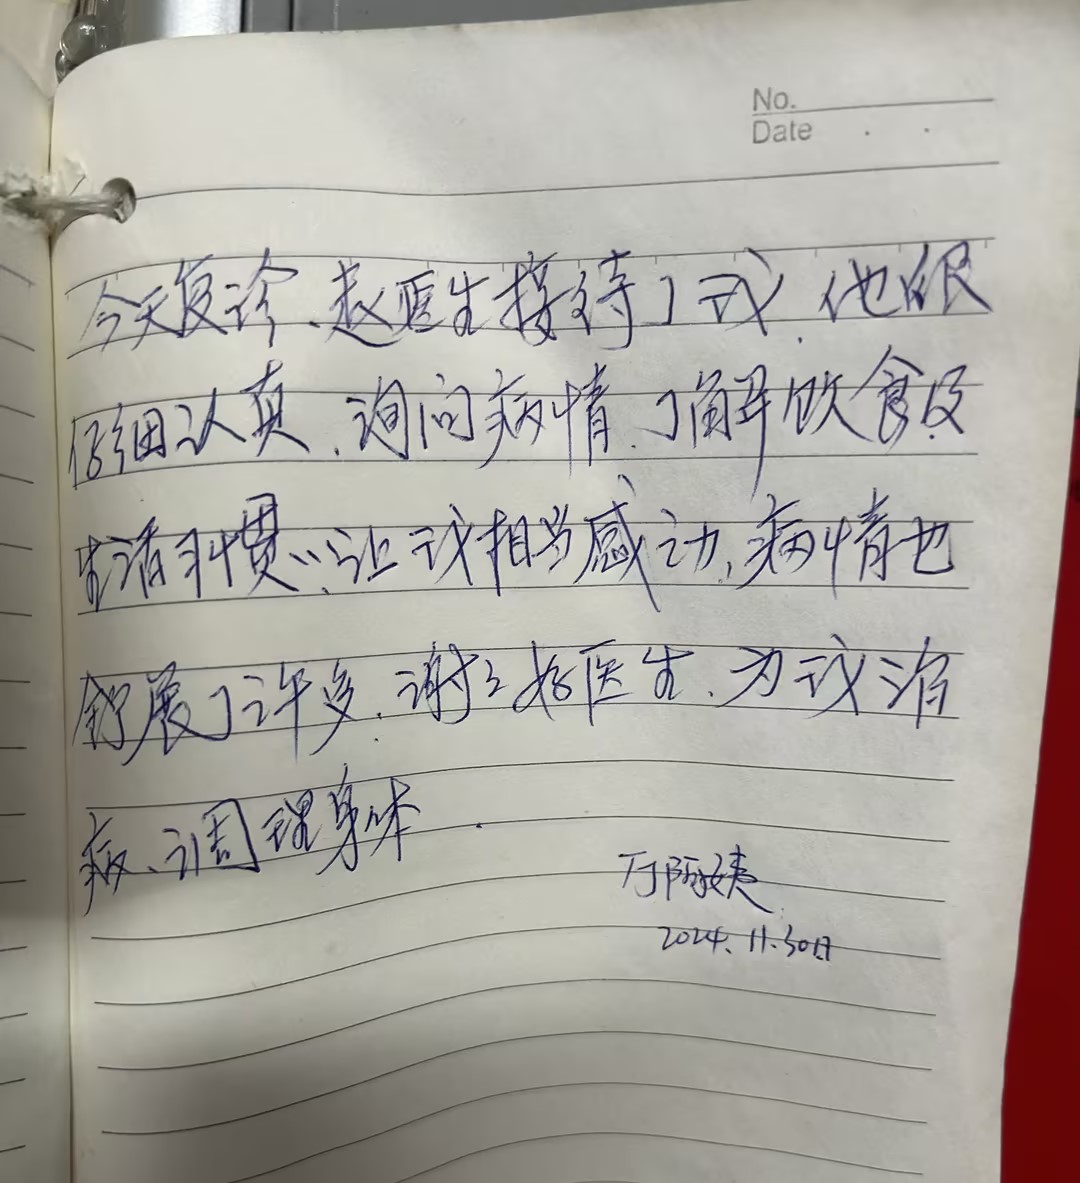 No.
Date . .
今天复诊、赵医生接待了我，他很
仔细认真、询问病情、了解饮食及
生活习惯…，让我相当感动，病情也
舒展了许多，谢谢好医生、为我治
病、调理身体．
阿姨
2024.11.30日